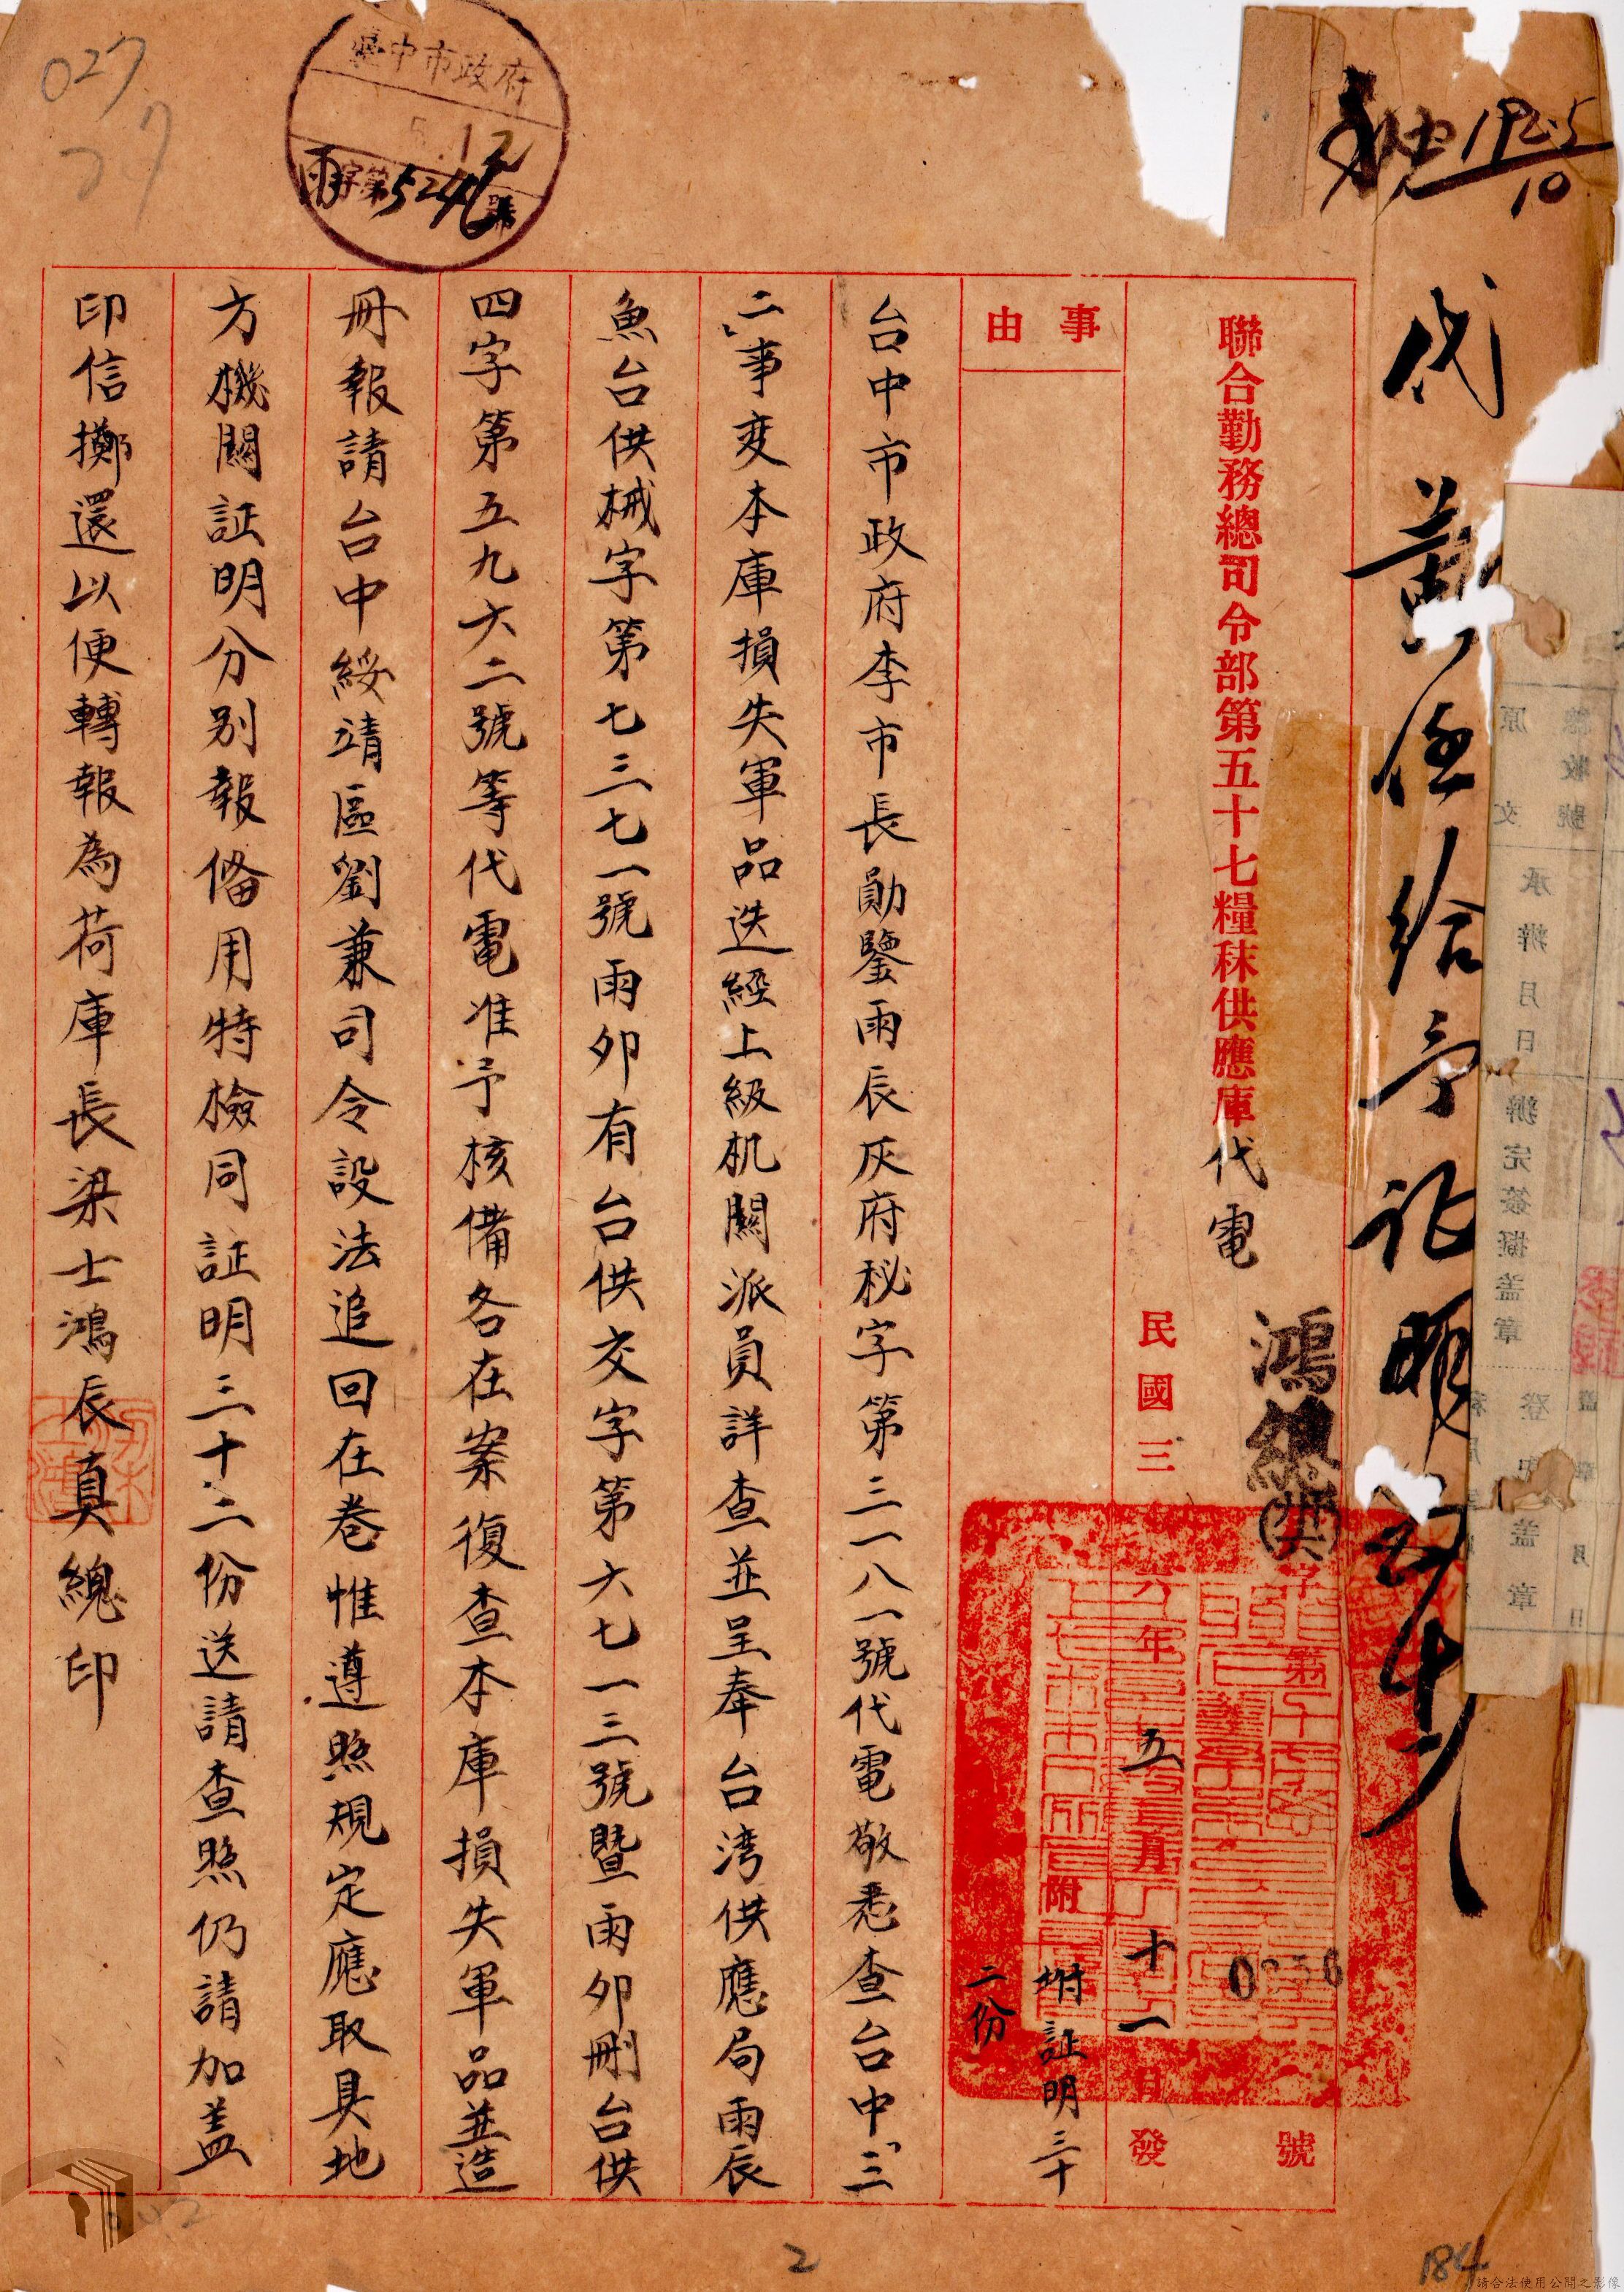 027
27
臺中市政府
5.12
雨字第5246號
192.5
10
代黃
給予証明
聯合勤務總司令部第五十七糧秣供應庫代電
鴻總
字第0356號
民國三六年五月十一日發
附
坿証明三十
二份
事由
台中市政府李市長勛鑒雨辰灰府秘字第三一八一號代電敬悉查台中「三
二」事変本庫損失軍品迭經上級机關派員詳查並呈奉台湾供應局雨辰
魚台供械字第七三七一號雨卯有台供交字第六七一三號暨雨卯刪台供
四字第五九六二號等代電准予核備各在案復查本庫損失軍品並造
冊報請台中綏靖區劉兼司令設法追回在卷惟遵照規定應取具地
方機關証明分別報俻用特檢同証明三十二份送請查照仍請加盖
印信擲還以便轉報為荷庫長梁士鴻辰真總印
總收號
原文
承辦月日
辦完簽擬盖章
盖章
月日
2
184
請合法使用公開之影像